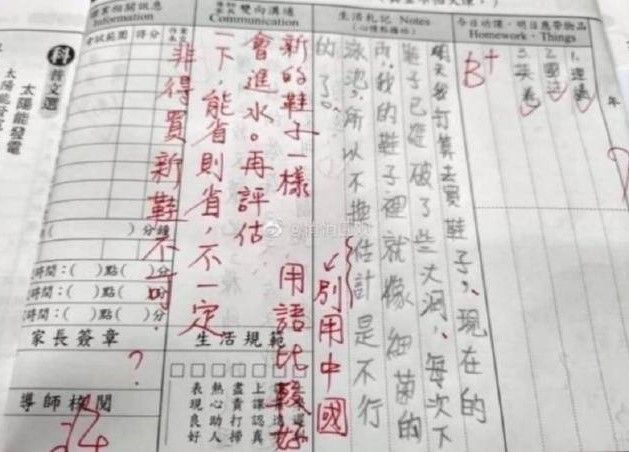 今日功課、明日應帶物品
Homework、Things
年
2.國
3.英卷
B+
生活札記 Notes
(心情點播站)
明天我打算去買鞋子,現在的
鞋子已經破了些大洞,每次下
雨,我的鞋子裡就像細菌的
泳池,所以不換估計是不行
的了。
別用中國
用語比較好
雙向溝通
Communication
新的鞋子一樣
會進水。再評估
一下,能省則省,不一定
非得買新鞋不可。
生活規範
上課認真
盡責打掃
熱心助人
表現良好
學業相關訊息
Information
考試範圍
得分
)分鐘
時間:( )點( )分
時間:( )點( )分
時間:( )點( )分
家長簽章
?
導師核閱
科普文選
太陽能發電